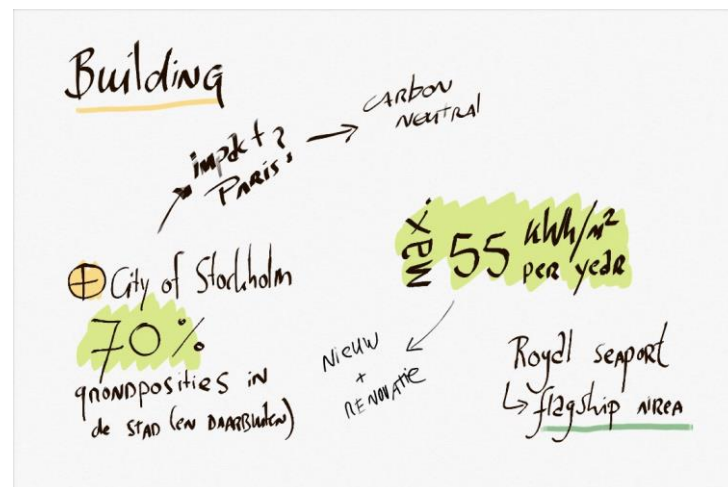 Building
impact?
Paris?
CARBON
NEUTRAL
City of Stockholm
70%
grondposities in
de stad (en daarbuiten)
max. 55 kWh/m²
per year
NIEUW
+
RENOVATIE
Royal seaport
flagship area